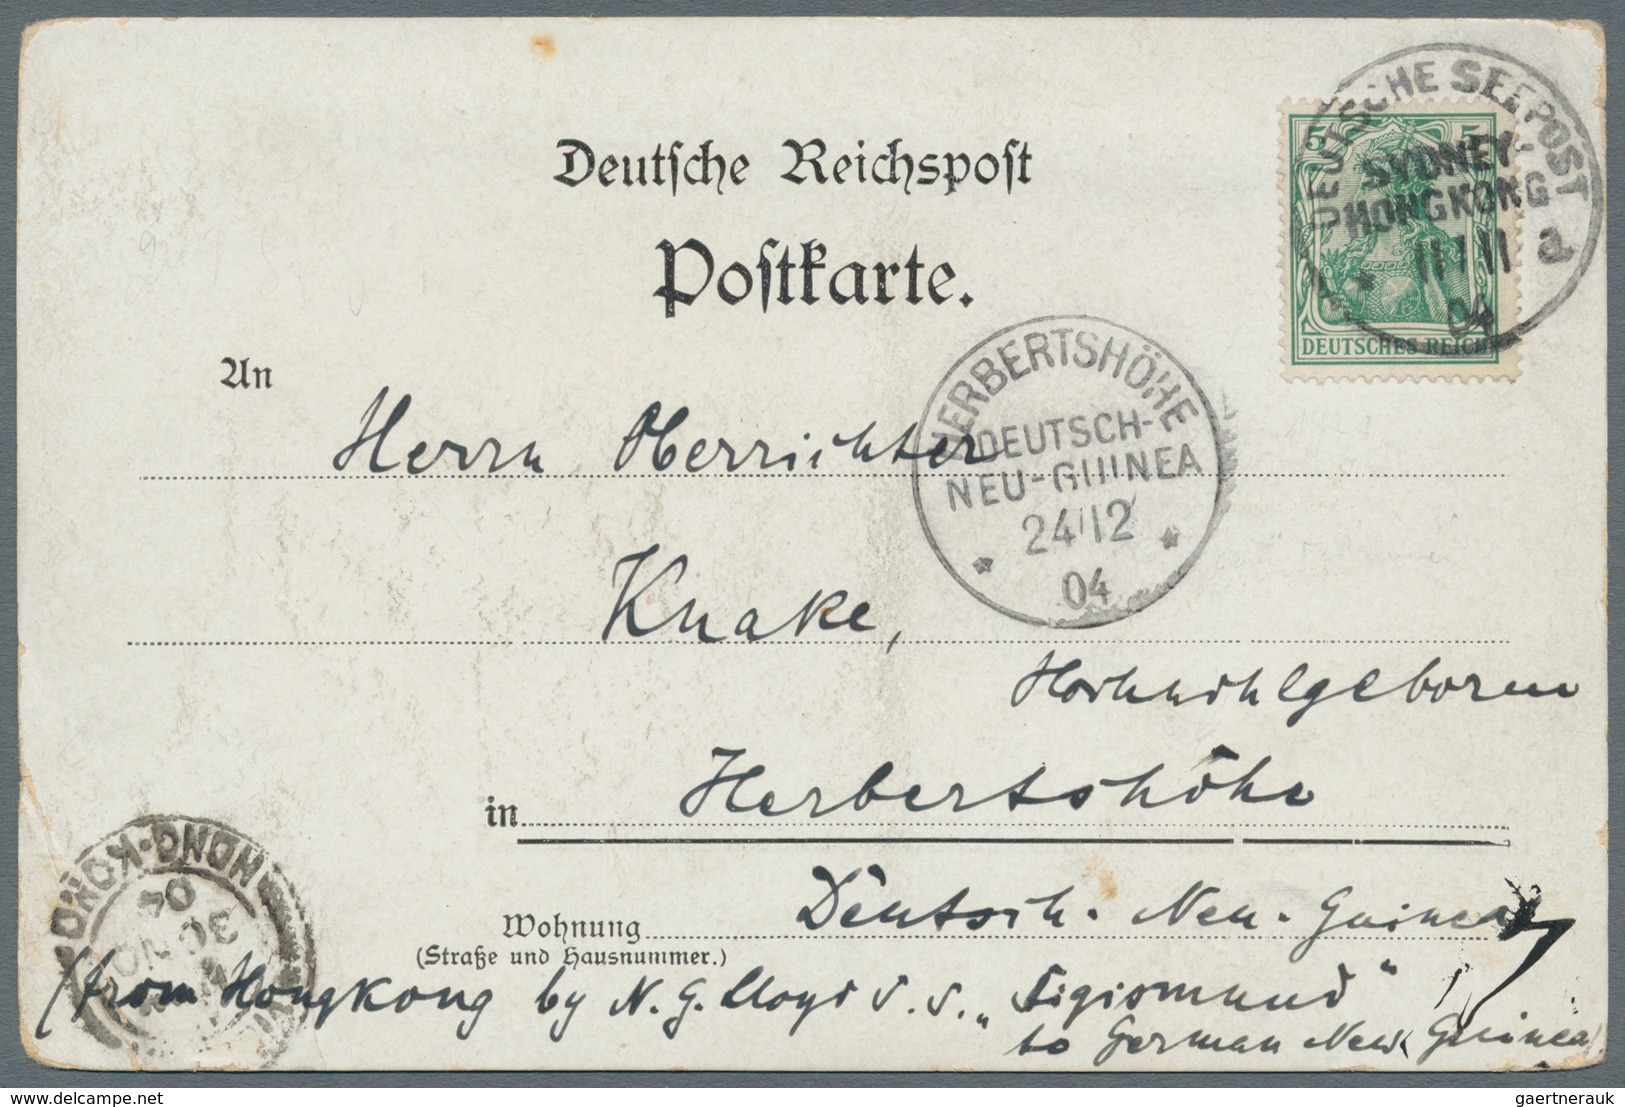 Deutsche Reichspost
Postkarte.
5 5
DEUTSCHES REICH
DEUTSCHE SEEPOST
SYDNEY-
HONGKONG
11/11 a
04
HERBERTSHÖHE
DEUTSCH-
NEU-GUINEA
24/12
04
An
Herrn Oberrichter
Knake,
Hochwohlgeboren
in Herbertshöhe
Deutsch-Neu-Guinea
Wohnung
(Straße und Hausnummer.)
HONG-KONG
04
30 NO
(from Hongkong by N. G. Lloyd S. S. „Sigismund“
to German New Guinea)
delcampe.net
gaertnerauk